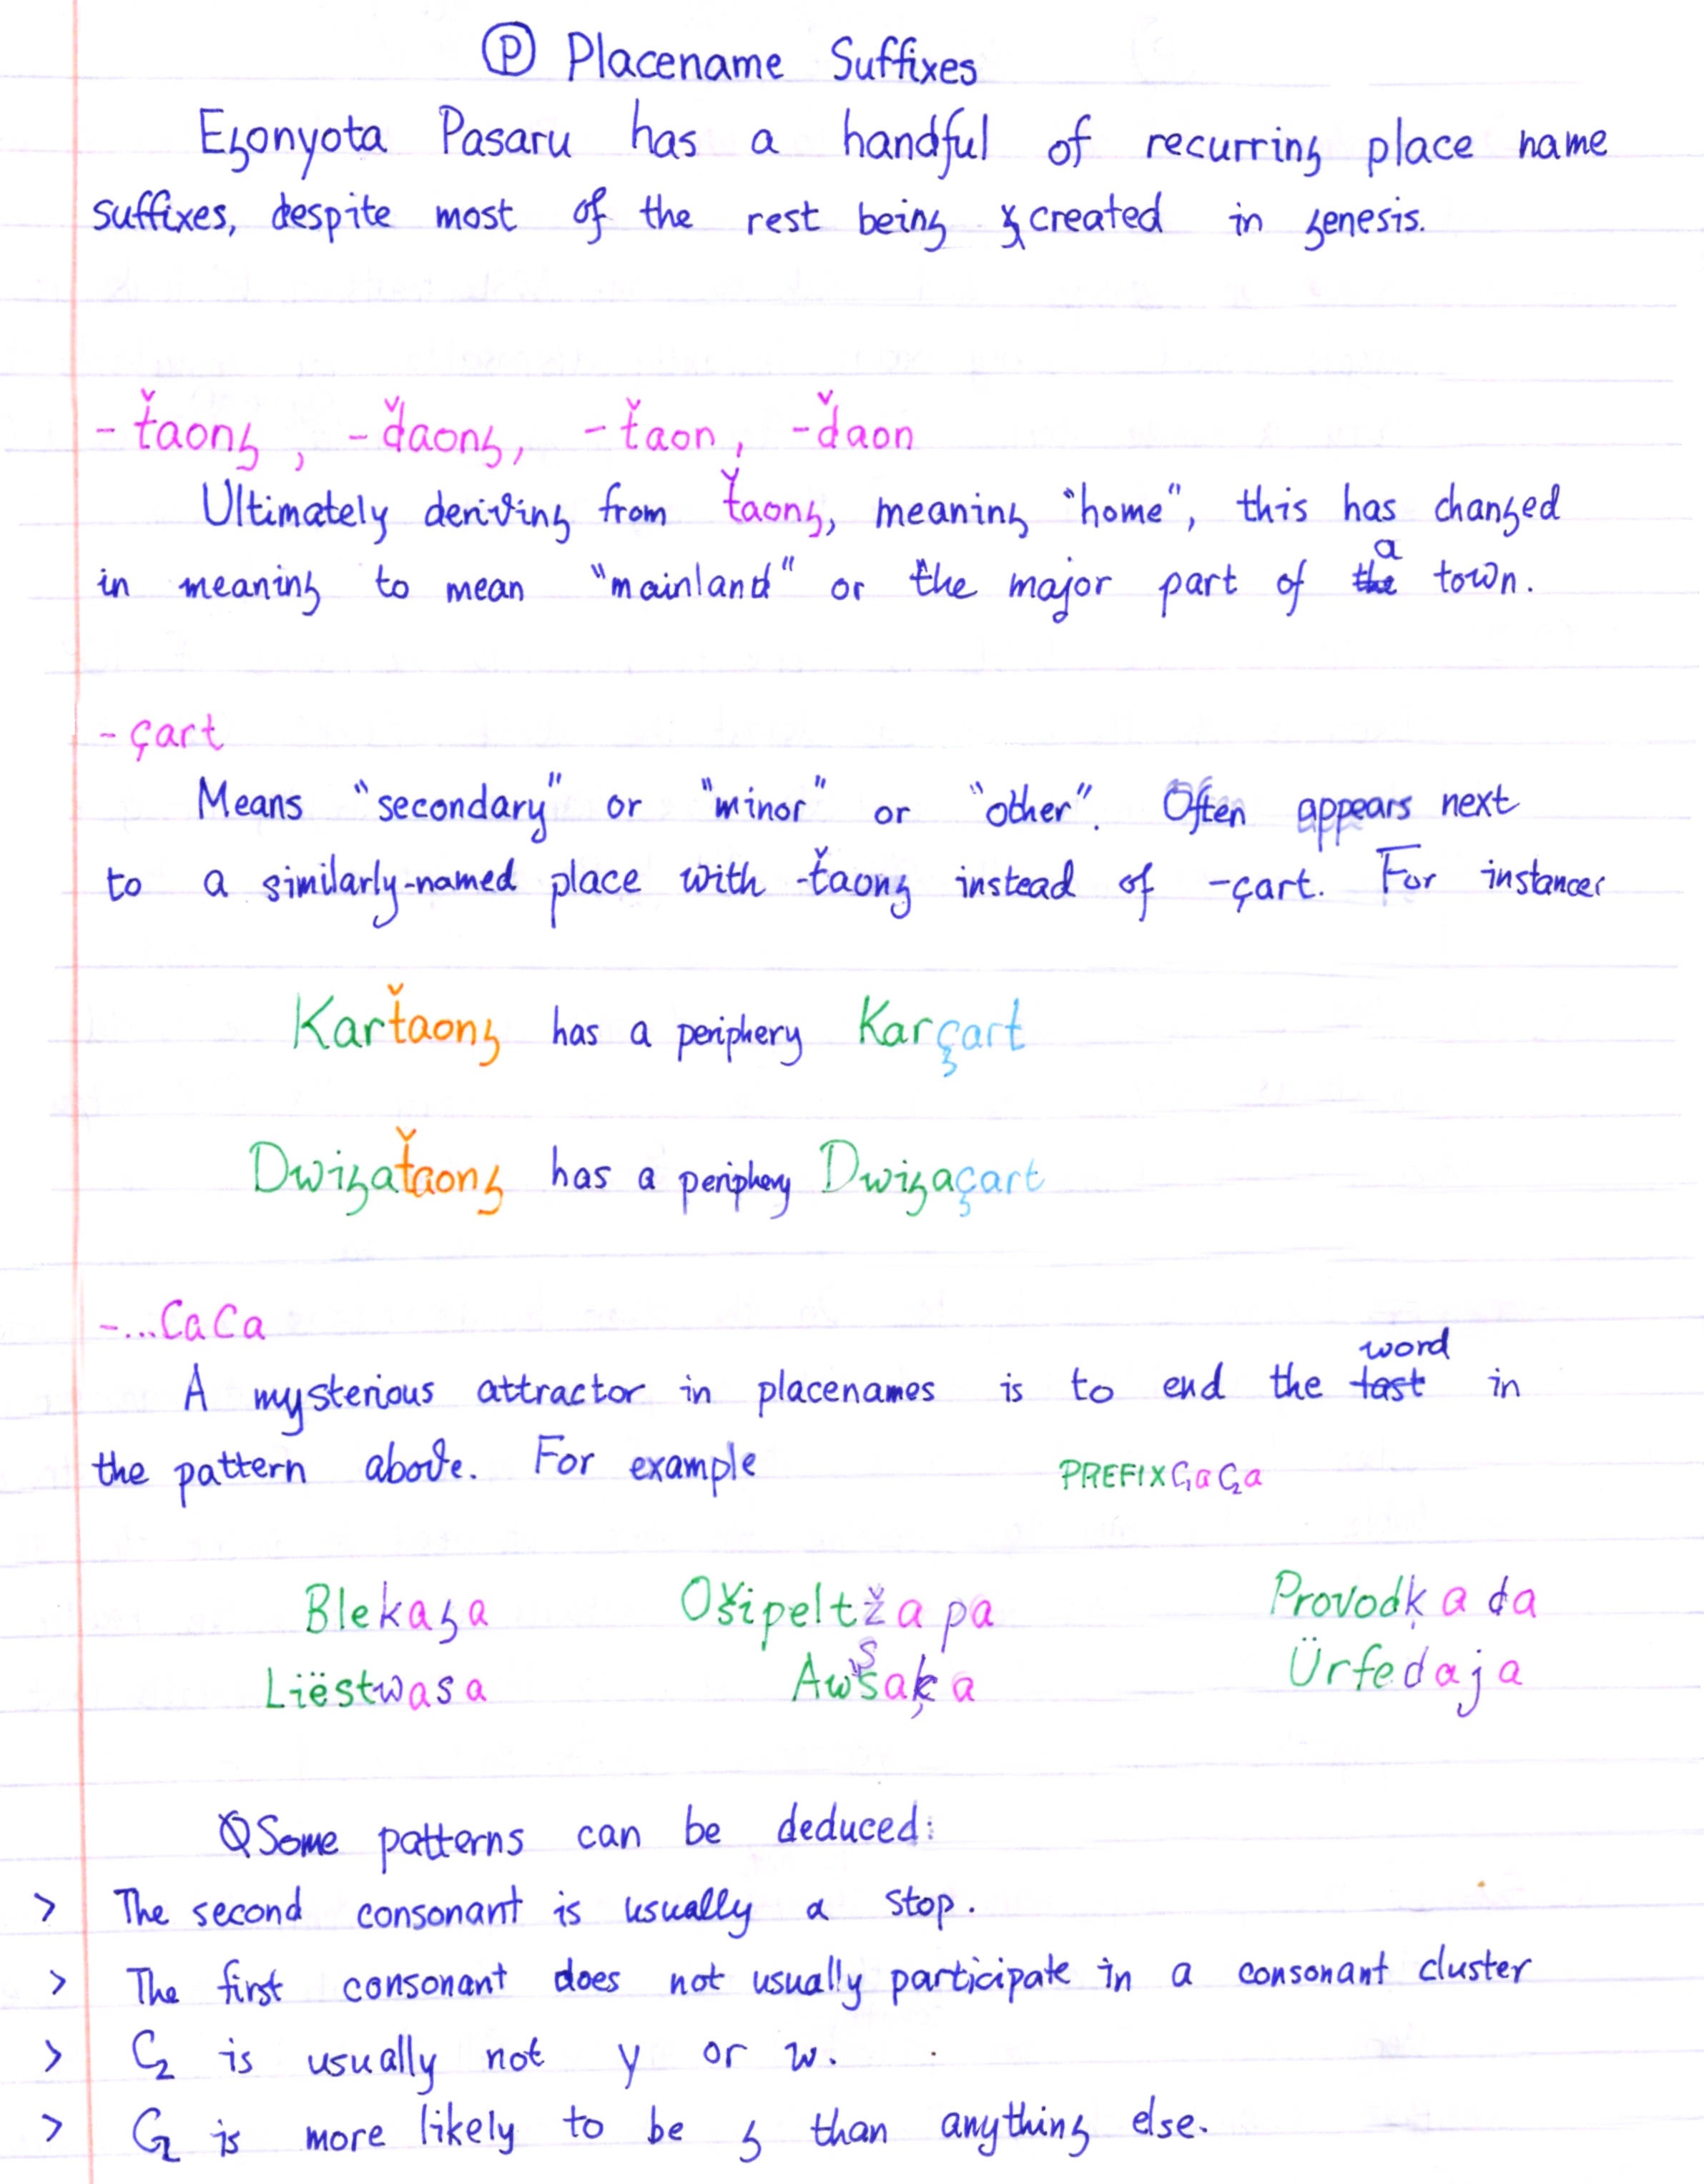 Ⓟ Placename Suffixes
Egonyota Pasaru has a handful of recurring place name
suffixes, despite most of the rest being created in genesis.
-ťaong, -ďaong, -ťaon, -ďaon
Ultimately deriving from ťaong, meaning "home", this has changed
in meaning to mean "mainland" or the major part of a town.
-çart
Means "secondary" or "minor" or "other". Often appears next
to a similarly-named place with -ťaong instead of -çart. For instance
Karťaong has a periphery Karçart
Dwigaťaong has a periphery Dwigaçart
-...CaCa
A mysterious attractor in placenames is to end the word in
the pattern above. For example PREFIXC₁aC₂a
Blekaga Ošipeltžapa Provodķađa
Liëstwasa Awšaķa Ürfedaja
Some patterns can be deduced:
> The second consonant is usually a stop.
> The first consonant does not usually participate in a consonant cluster
> C₂ is usually not y or w.
> C₂ is more likely to be g than anything else.